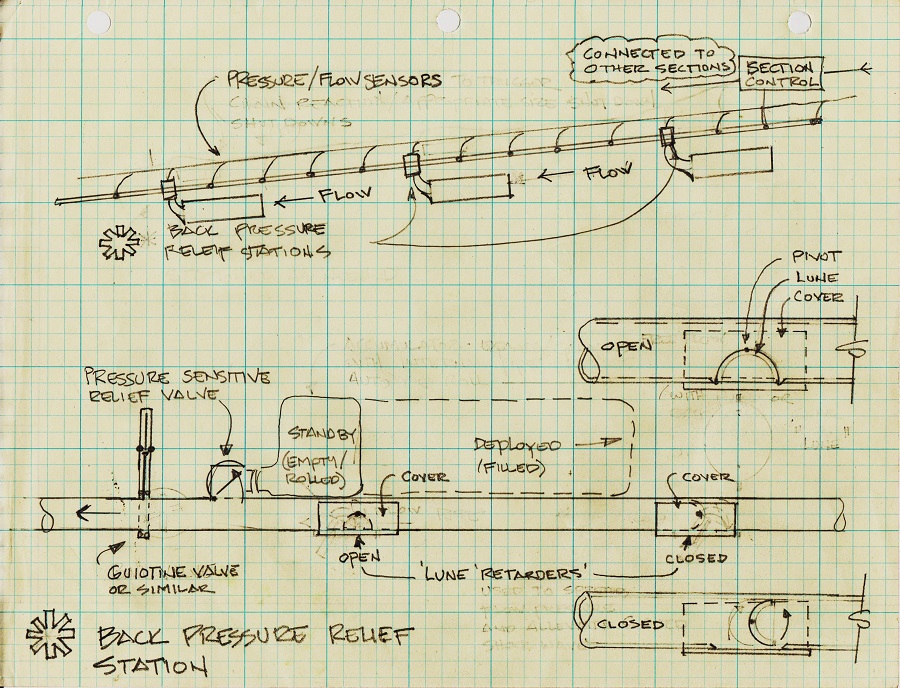 PRESSURE/FLOW SENSORS
CONNECTED TO
OTHER SECTIONS
SECTION
CONTROL
FLOW
FLOW
BACK PRESSURE
RELEIF STATIONS
PIVOT
LUNE
COVER
OPEN
PRESSURE SENSITIVE
RELIEF VALVE
STANDBY
(EMPTY/
ROLLED)
DEPLOYED
(FILLED)
COVER
COVER
OPEN
CLOSED
'LUNE 'RETARDERS'
GUIOTINE VALVE
OR SIMILAR
CLOSED
BACK PRESSURE RELIEF
STATION